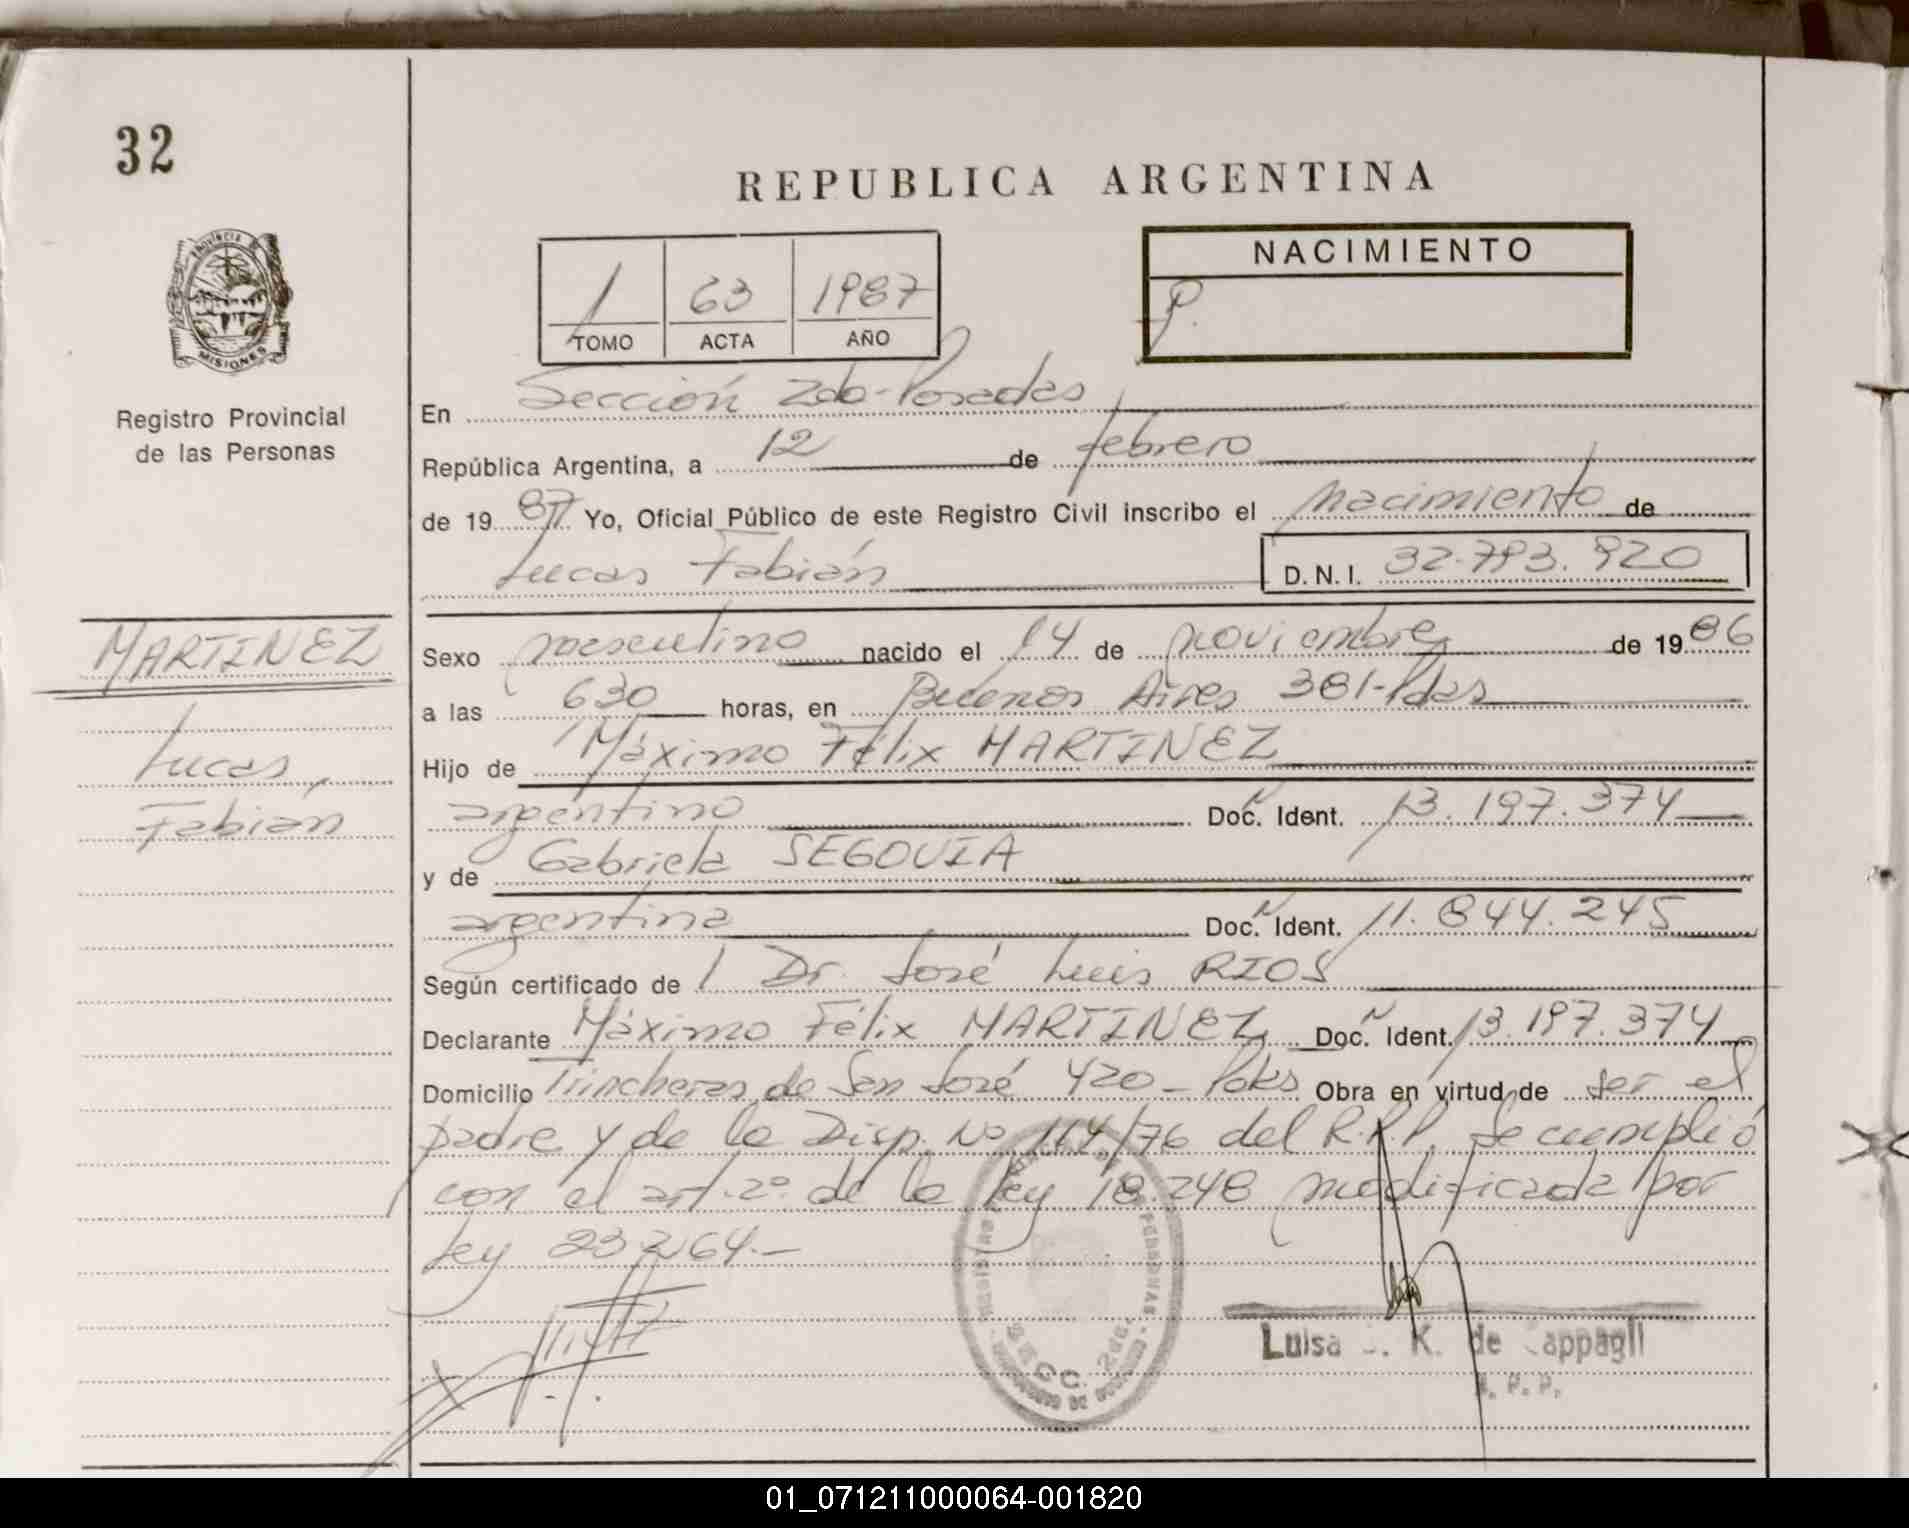 32
REPUBLICA ARGENTINA
PROVINCIA DE
MISIONES
1 63 1987
TOMO ACTA AÑO
NACIMIENTO
P.
Registro Provincial
de las Personas
En Sección 2da-Posadas
República Argentina, a 12 de febrero
de 1987 Yo, Oficial Público de este Registro Civil inscribo el nacimiento de
Lucas Fabián D.N.I. 32.793.920
MARTINEZ
Lucas,
Fabián
Sexo masculino nacido el 14 de noviembre de 1986
a las 630 horas, en Buenos Aires 381-Pdas
Hijo de Máximo Félix MARTINEZ
argentino Doc. Ident. 13.197.374
y de Gabriela SEGOVIA
argentina Doc. Ident. 11.844.245
Según certificado de Dr. José Luis RIOS
Declarante Máximo Félix MARTINEZ Doc. Ident. 13.197.374
Domicilio Trincheras de San José 420-Pdas Obra en virtud de ser el
padre y de la Disp. No 114/76 del R.P.P. Se cumplió
con el art. 2º de la ley 18.248 modificada por
ley 23264.-
SECC. 2da.
Luisa K. de
R. P. P.
01_071211000064-001820